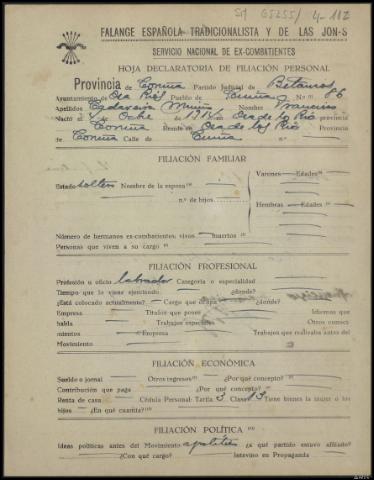 SM 65255/4-112
FALANGE ESPAÑOLA TRADICIONALISTA Y DE LAS JON-S
SERVICIO NACIONAL DE EX-COMBATIENTES
HOJA DECLARATORIA DE FILIACIÓN PERSONAL
Provincia de Coruña Partido Judicial de Betanzos
Ayuntamiento de Oza Rios Pueblo de Cuiña N.º 86
Apellidos Muiño Nombre Francisco
Nació el 4 de Octbre de 191 en Oza de los Rios provincia
de Coruña Reside en Oza de los Rios Provincia
de Coruña Calle de Cuiña
FILIACIÓN FAMILIAR
Varones —Edades
Estado soltero Nombre de la esposa
n.º de hijos
Hembras —Edades
Número de hermanos ex-combatientes, vivos muertos
Personas que viven a su cargo
FILIACIÓN PROFESIONAL
Profesión u oficio labrador Categoría o especialidad
Tiempo que lo viene ejerciendo ¿dónde?
¿Está colocado actualmente? Cargo que ocupa ¿donde?
Empresa Títulos que posee Idiomas que
habla Trabajos especiales Otros conoci-
mientos Empresa Trabajos que realizaba antes del
Movimiento
FILIACIÓN ECONÓMICA
Sueldo o jornal Otros ingresos ¿Por qué concepto?
Contribución que paga ¿Por qué concepto?
Renta de casa Cédula Personal: Tarifa 3 Clase 13 Tiene bienes la mujer o los
hijos ¿En qué cuantía?
FILIACIÓN POLÍTICA
Ideas políticas antes del Movimiento apolitico ¿a qué partido estuvo afiliado?
¿Con qué cargo? Intervino en Propaganda